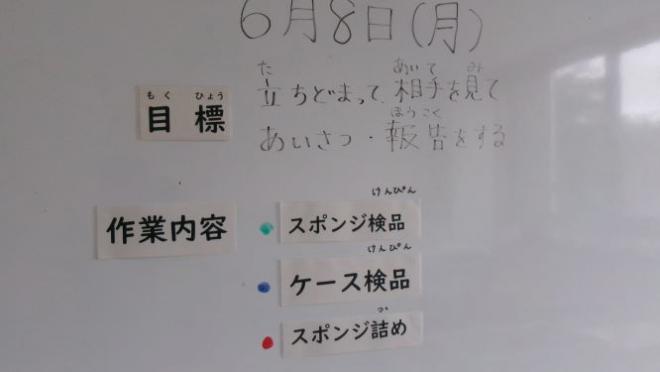 6月8日(月)
た あいて み
立ちどまって、相手を見て
もく ひょう
目標
ほうこく
あいさつ・報告をする
けんぴん
作業内容 スポンジ検品
けんぴん
ケース検品
つ
スポンジ詰め